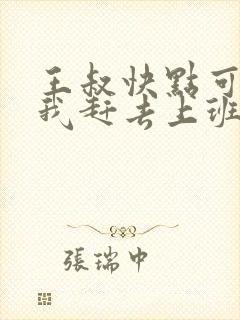 王叔快點可
我赶去上班
張瑞中